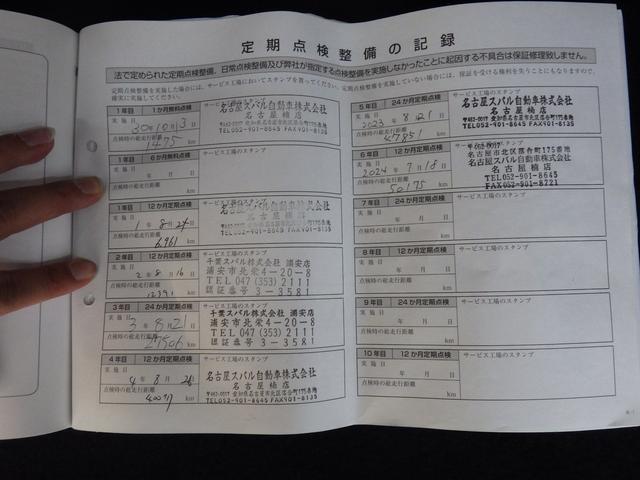 定期点検整備の記録
法で定められた定期点検整備、日常点検整備及び弊社が指定する点検整備を実施しなかったことに起因する不具合は保証修理致しません。
定期点検整備を実施した場合は、サービス工場においてスタンプを貰ってください。定期点検整備を実施していない場合には、保証を受ける権利を失うこともなりますので、
確実に実施してください。
1年目 1か月無料点検 サービス工場のスタンプ
実施日 30年10月3日
点検時の総走行距離
1475 km
名古屋スバル自動車株式会社
名古屋楠店
TEL052-901-8645 FAX901-8135
1年目 6か月無料点検 サービス工場のスタンプ
実施日
年 月 日
点検時の総走行距離
km
1年目 12か月定期点検 サービス工場のスタンプ
実施日
1年8月24日
点検時の総走行距離
6961 km
名古屋スバル自動車株式会社
名古屋楠店
TEL052-901-8645 FAX901-8135
2年目 12か月定期点検 サービス工場のスタンプ
実施日
2年8月16日
点検時の総走行距離
km
千葉スバル株式会社 浦安店
浦安市北栄4-20-8
TEL 047 (353) 2111
認証番号 3-3581
3年目 24か月定期点検 サービス工場のスタンプ
実施日
3年8月21日
点検時の総走行距離
km
千葉スバル株式会社 浦安店
浦安市北栄4-20-8
TEL 047 (353) 2111
認証番号 3-3581
4年目 12か月定期点検 サービス工場のスタンプ
実施日
4年8月
点検時の総走行距離
km
名古屋スバル自動車株式会社
名古屋楠店
〒462-0017 愛知県名古屋市北区落合町175番地
TEL052-901-8645 FAX901-8135
5年目 24か月定期点検 サービス工場のスタンプ
実施日
2023年8月21日
点検時の総走行距離
47851 km
名古屋スバル自動車株式会社
名古屋楠店
〒462-0017 愛知県名古屋市北区落合町175番地
TEL052-901-8645 FAX901-8135
6年目 12か月定期点検 サービス工場のスタンプ
実施日
2024年7月18日
点検時の総走行距離
50175 km
〒462-0017
名古屋市北区落合町175番地
名古屋スバル自動車株式会社
名古屋楠店
TEL052-901-8645
FAX052-901-8721
7年目 24か月定期点検 サービス工場のスタンプ
実施日
年 月 日
点検時の総走行距離
km
8年目 12か月定期点検 サービス工場のスタンプ
実施日
年 月 日
点検時の総走行距離
km
9年目 24か月定期点検 サービス工場のスタンプ
実施日
年 月 日
点検時の総走行距離
km
10年目 12か月定期点検 サービス工場のスタンプ
実施日
年 月 日
点検時の総走行距離
km